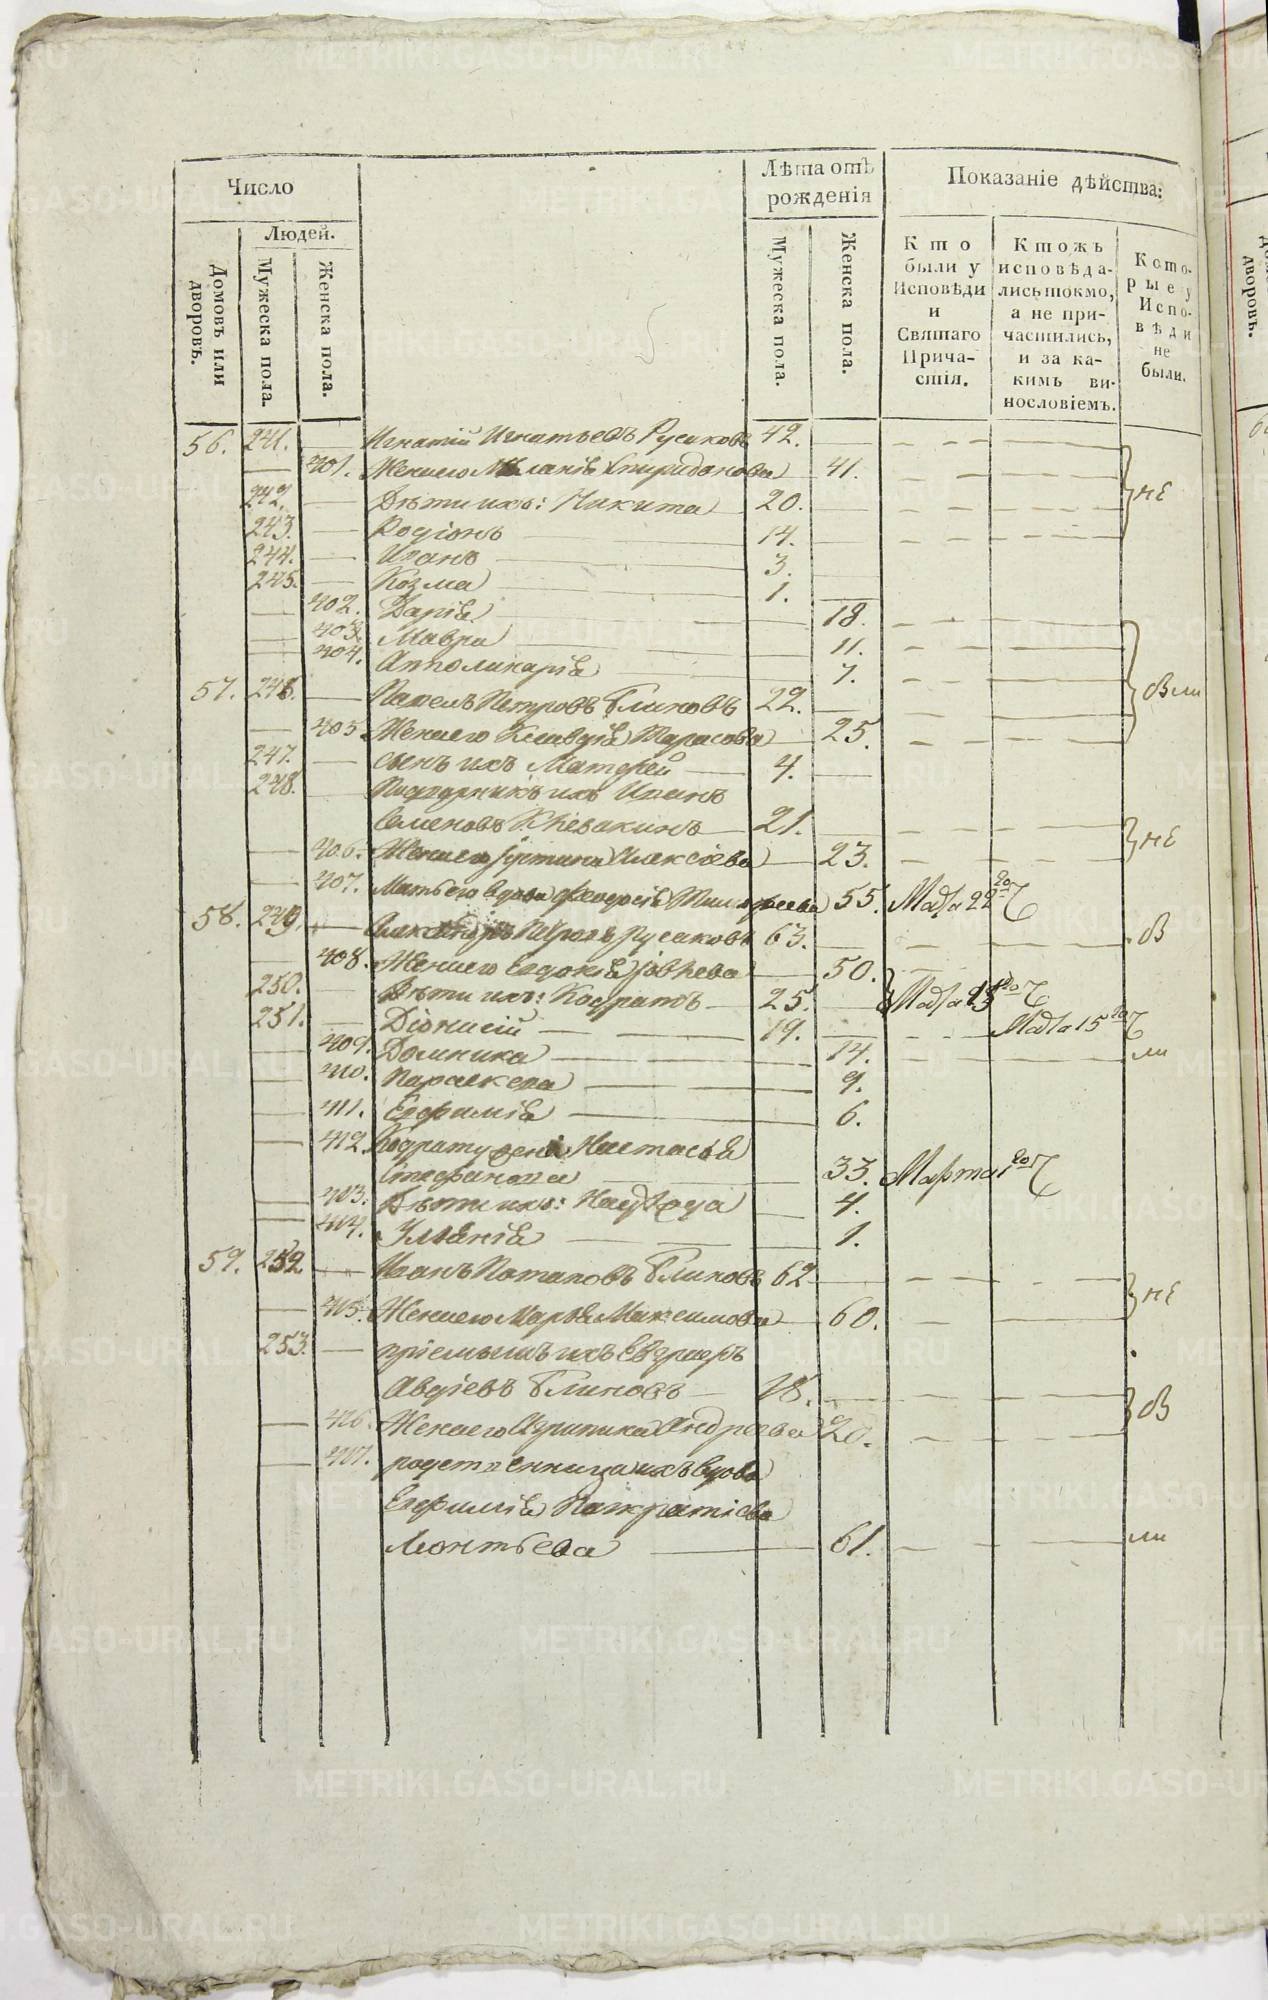 Число
Людей.
Домовъ или дворовъ.
Мужеска пола.
Женска пола.
Лѣта отъ
рожденія
Мужеска пола.
Женска пола.
Показаніе дѣйства:
Кто
были у
Исповѣди
и
Святаго
Прича-
стія.
Ктожъ
исповѣда-
лись токмо,
а не при-
частились,
и за ка-
кимъ ви-
нословіемъ.
Кото-
рые у
Испо-
вѣди
не
были.
56. 241. Игнатій Игнатьевъ Русаковъ 42.
401. Жена его Меланія Спиридонова 41.
242. Дѣти ихъ: Никита 20. не
243. Родіонъ 14.
244. Иванъ 3.
245. Козма 1.
402. Дарія 18.
403. Мавра 11.
404. Апполинарія 7.
57. 246. Павелъ Петровъ Блиновъ 22. были
405. Жена его Клавдія Тарасова 25.
247. сынъ ихъ Матфей 4.
248. Подворникъ ихъ Иванъ
Семеновъ Кевакинъ 21.
406. Жена его Іустина Алексіева 23. не
407. Мать его вдова Феодосія Тимофеева 55. Марта 22го
58. 249. Александръ Петровъ Русаковъ 63. В
408. Жена его Евдокія Іовлева 50.
250. Дѣти ихъ: Кодратъ 25. Марта
251. Діонисій 19. Марта 15го
409. Домника 14. ли
410. Параскева 9.
411. Евфимія 6.
412. Кодрату жена Настасья
Стефанова 33. Марта 1го
403. Дѣти ихъ: Надежда 4.
404. Улянія 1.
59. 252. Иванъ Потаповъ Блиновъ 62
405. Жена его Марья Максимова 60. не
253. пріемышъ ихъ Евгриеръ
Авдіевъ Блиновъ 18.
406. Жена его Агрипина Андреева 20. В
407. родственница ихъ вдова
Евфимія Панкратіева
Леонтьева 61. ли